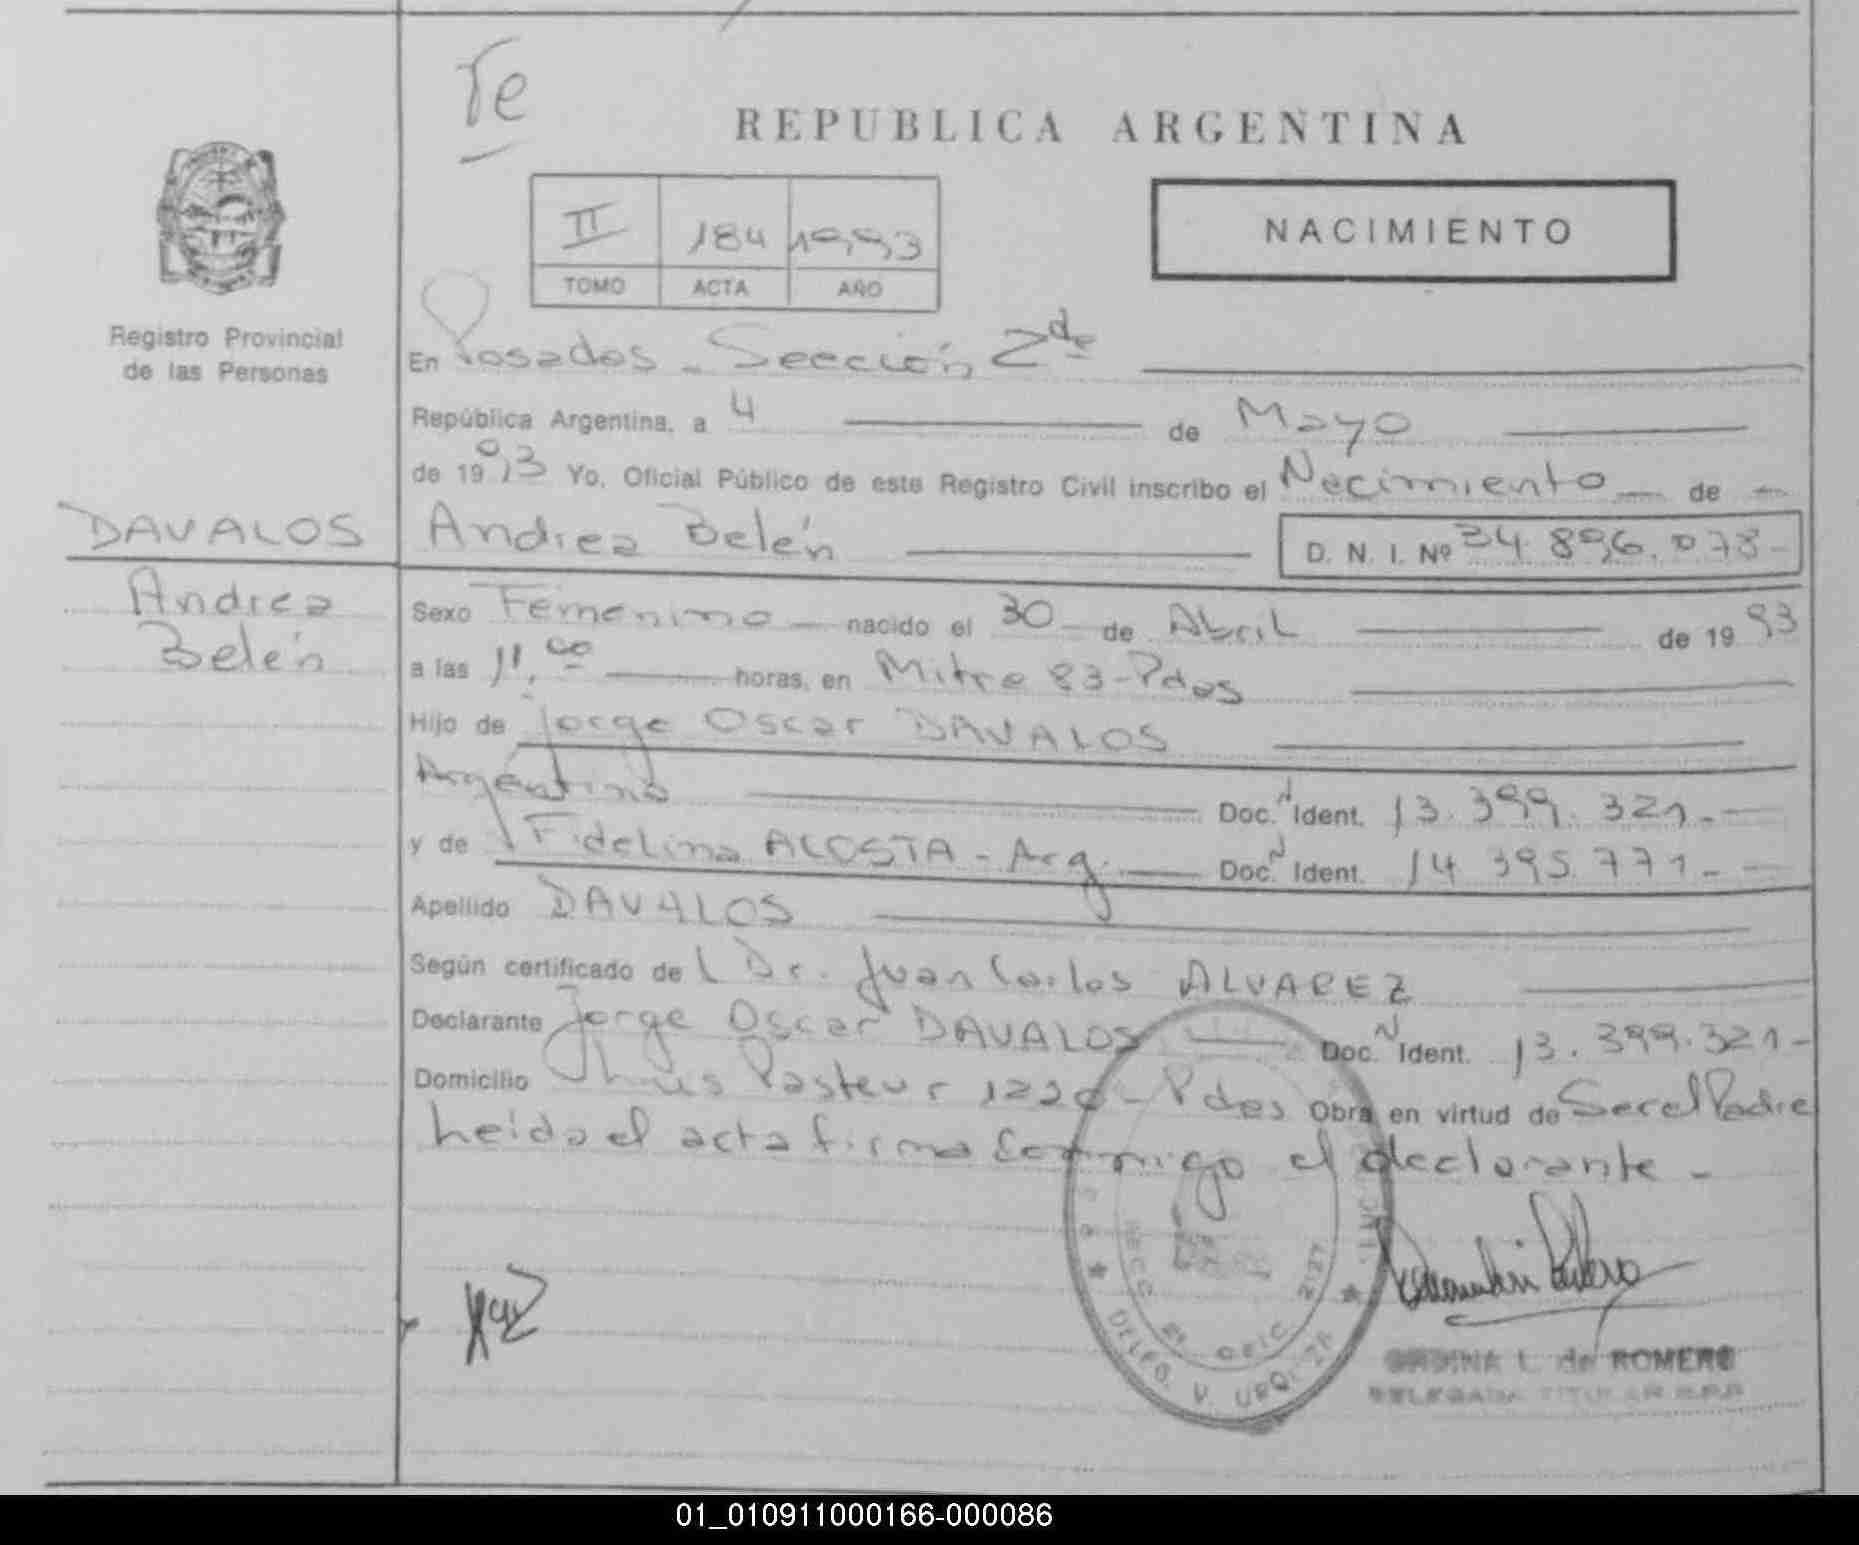 Te
REPUBLICA ARGENTINA
II 184 1993
TOMO ACTA AÑO
NACIMIENTO
Registro Provincial
de las Personas
En Posadas - Sección 2da
República Argentina, a 4 de Mayo
de 1993 Yo, Oficial Público de este Registro Civil inscribo el Nacimiento de
DAVALOS Andrea Belén D. N. I. Nº 34.896.078-
Andrea
Belén
Sexo Femenino nacido el 30 de Abril de 1993
a las 11,00 horas, en Mitre 83-Pdas
Hijo de Jorge Oscar DAVALOS
Argentino Doc. N Ident. 13.399.321-
y de Fidelina ACOSTA - Arg. Doc. N Ident. 14 395 771-
Apellido DAVALOS
Según certificado del Dr. Juan Carlos ALVAREZ
Declarante Jorge Oscar DAVALOS Doc. N Ident. 13.399.321-
Domicilio Luis Pasteur - Pdas Obra en virtud de Ser el Padre
Leida el acta firma conmigo el declarante -
SECC 2ª OFIC 2127
DELEG. V. URQUIZA
L. de ROMERO
DELEGADA TITULAR R.P.P.
01_010911000166-000086